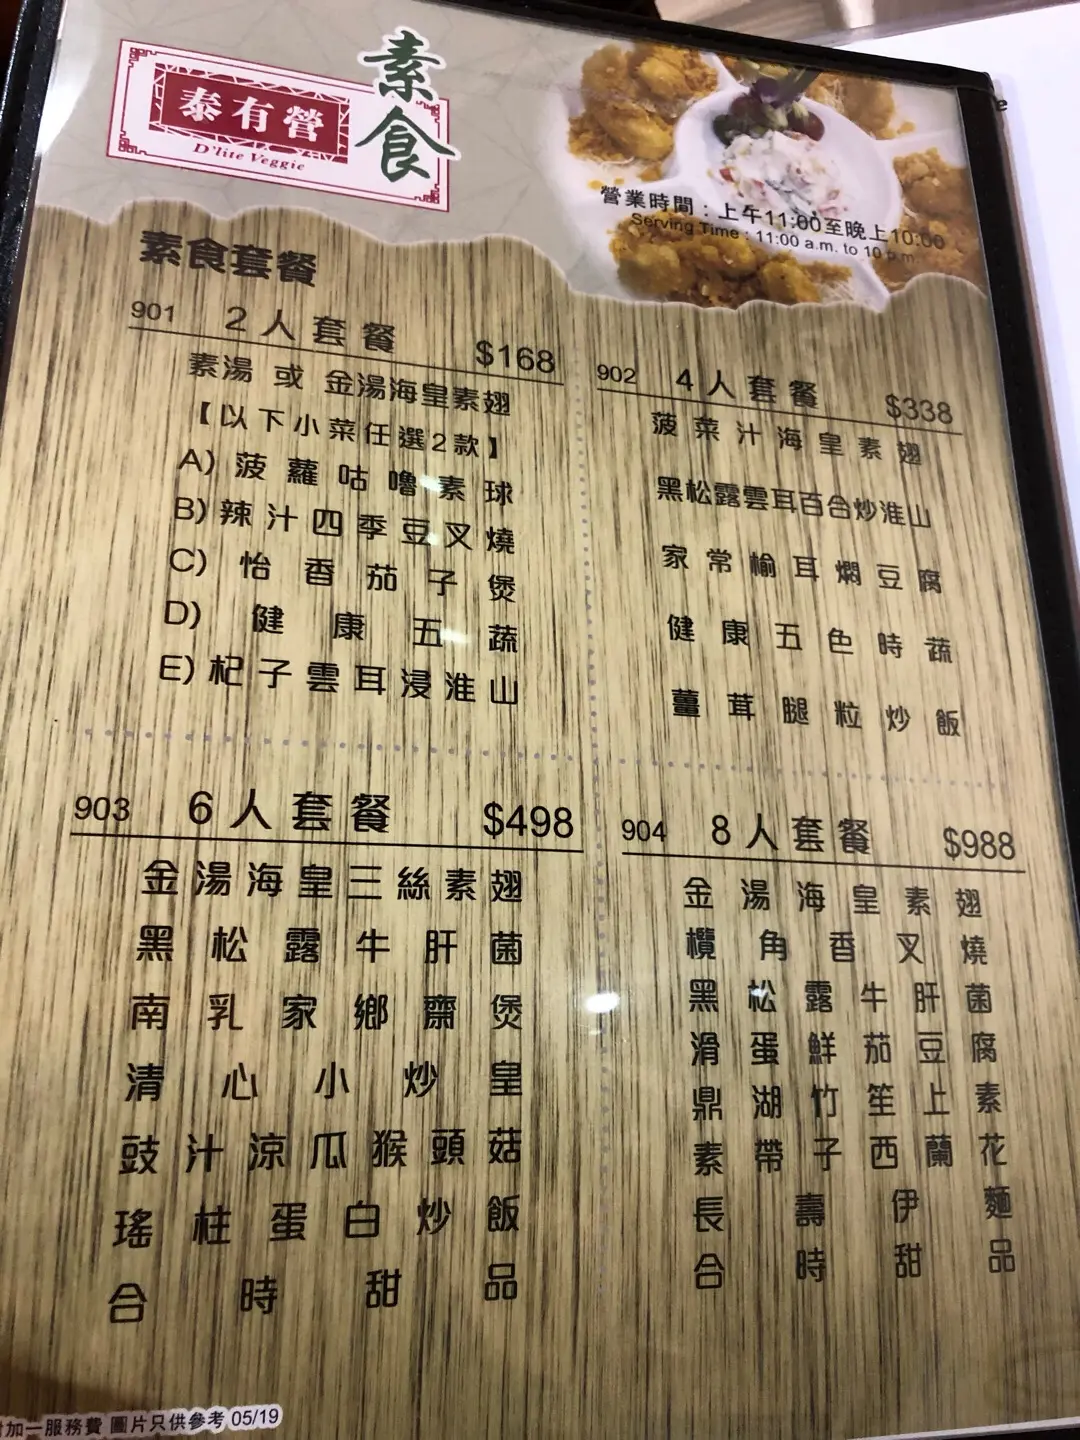 素食
泰有營
D'lite Veggie
營業時間：上午11:00至晚上10:00
Serving Time : 11:00 a.m. to 10 p.m.
素食套餐
901 2人套餐 $168
素湯 或 金湯海皇素翅
【以下小菜任選2款】
A) 菠蘿咕嚕素球
B) 辣汁四季豆叉燒
C) 怡香茄子煲
D) 健康五蔬
E) 杞子雲耳浸淮山
902 4人套餐 $338
菠菜汁海皇素翅
黑松露雲耳百合炒淮山
家常榆耳燜豆腐
健康五色時蔬
薑茸腿粒炒飯
903 6人套餐 $498
金湯海皇三絲素翅
黑松露牛肝菌
南乳家鄉齋煲
清心小炒皇
豉汁涼瓜猴頭菇
瑤柱蛋白炒飯
合時甜品
904 8人套餐 $988
金湯海皇素翅
欖角香叉燒
黑松露牛肝菌
滑蛋鮮茄豆腐
鼎湖竹笙上素
素帶子西蘭花
長壽伊麵
合時甜品
加一服務費 圖片只供參考 05/19